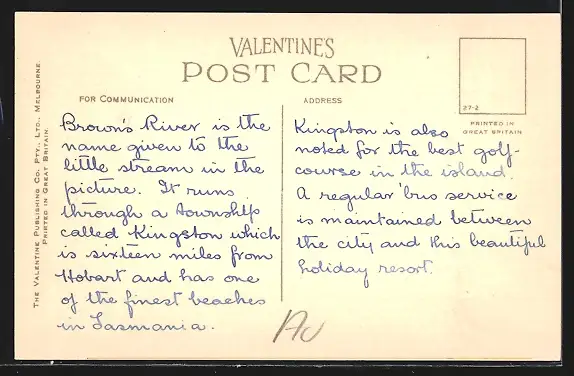 VALENTINE'S
POST CARD
FOR COMMUNICATION
ADDRESS
27-2
PRINTED IN
GREAT BRITAIN
THE VALENTINE PUBLISHING CO. PTY., LTD., MELBOURNE.
PRINTED IN GREAT BRITAIN.
Brown's River is the
name given to the
little stream in the
picture. It runs
through a township
called Kingston which
is sixteen miles from
Hobart and has one
of the finest beaches
in Tasmania.
Kingston is also
noted for the best golf-
course in the island.
A regular 'bus service
is maintained between
the city and this beautiful
holiday resort.
AU